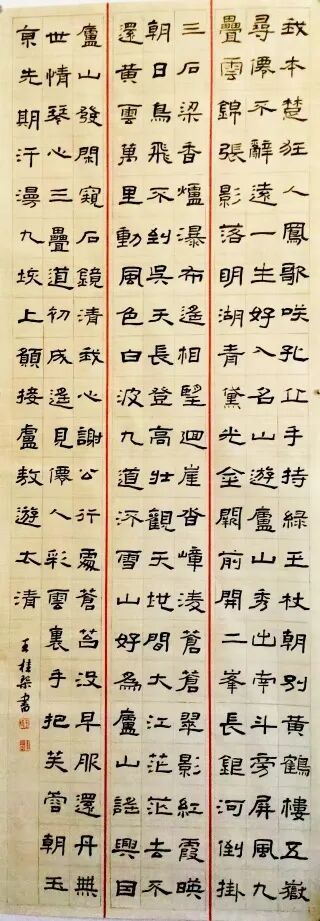 我本楚狂人鳳歌咲孔丘手持綠玉杖朝別黃鶴樓五嶽
尋僊不辭遠一生好入名山遊廬山秀出南斗旁屏風九
疊雲錦張影落明湖青黛光金闕前開二峯長銀河倒掛
三石梁香爐瀑布遙相望迴崖沓嶂凌蒼蒼翠影紅霞暎
朝日鳥飛不到吳天長登高壯觀天地間大江茫茫去不
還黃雲萬里動風色白波九道流雪山好為廬山謠興因
廬山發閑窺石鏡清我心謝公行處蒼苔沒早服還丹無
世情琴心三疊道初成遙見僊人彩雲裏手把芙蓉朝玉
京先期汗漫九垓上願接盧敖遊太清
王桂榮書